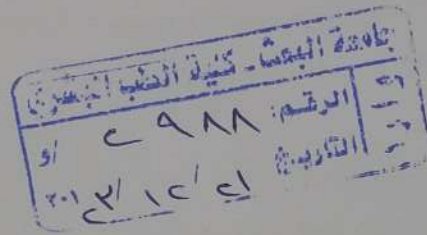 جامعة البعث - كلية الطب البشري
الرقم: ٢٩٨٨
التاريخ ٢١ / ١٢ /